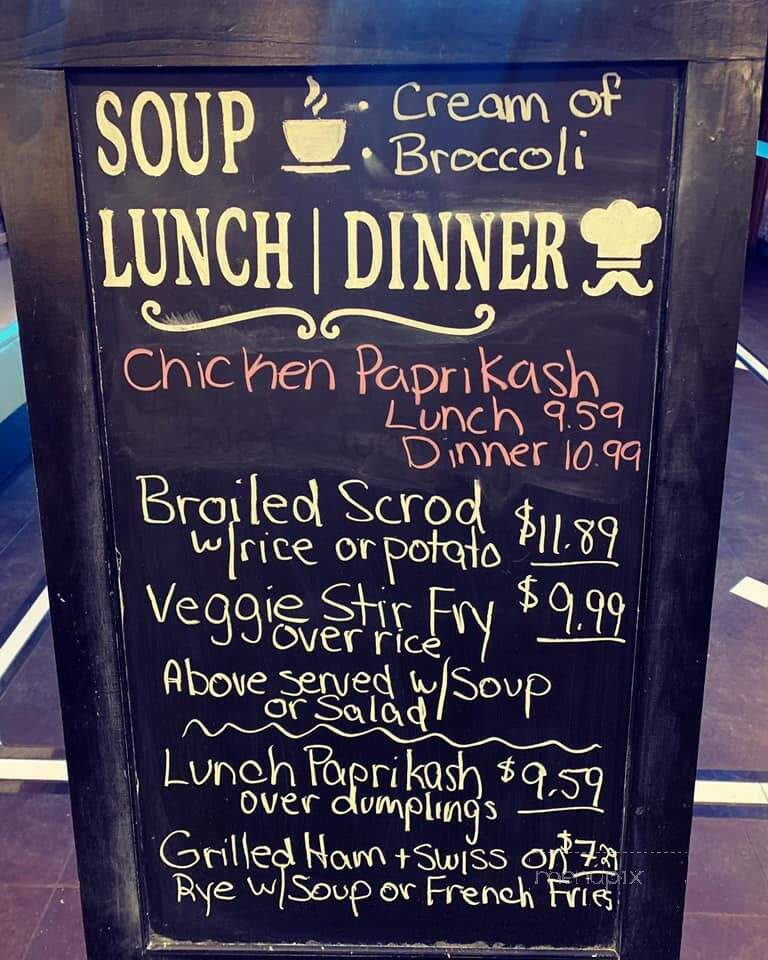 SOUP • Cream of
• Broccoli
LUNCH | DINNER
Chicken Paprikash
Lunch 9.59
Dinner 10.99
Broiled Scrod $11.89
w/rice or potato
Veggie Stir Fry $9.99
over rice
Above served w/Soup
or Salad
Lunch Paprikash $9.59
over dumplings
Grilled Ham + Swiss on
Rye w/Soup or French Fries
menupix